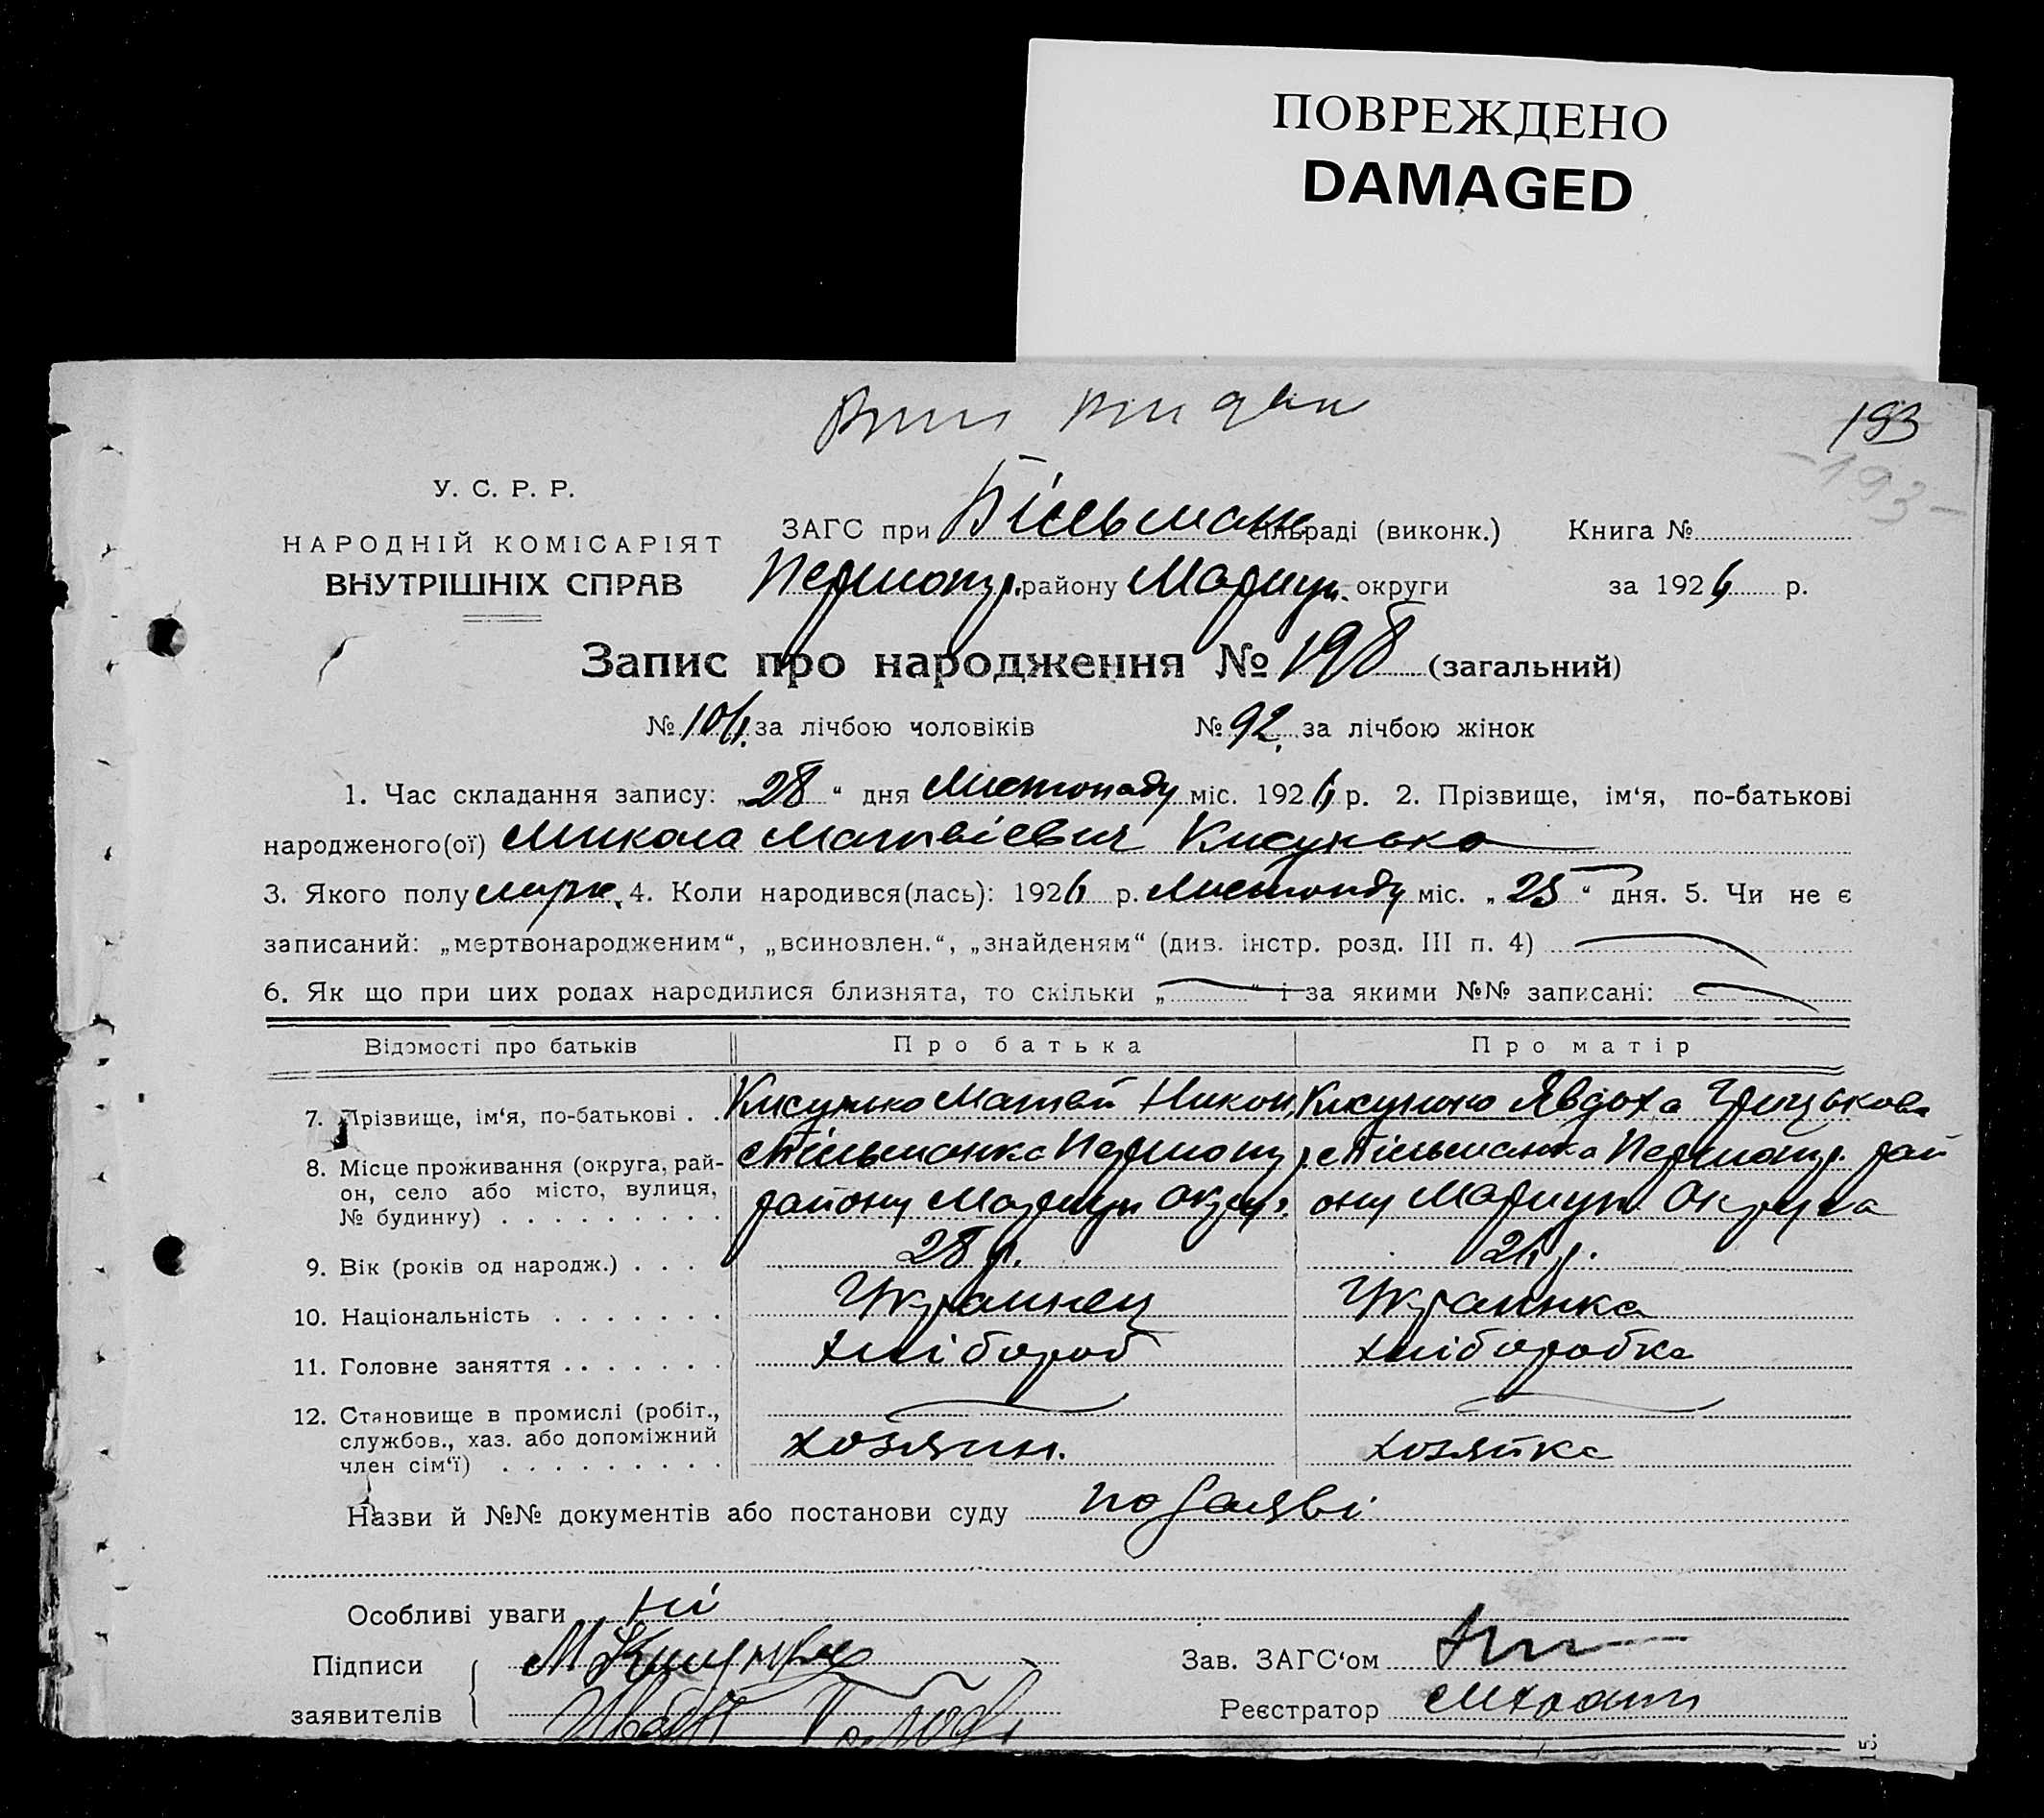 ПОВРЕЖДЕНО
DAMAGED
193
-193-
У. С. Р. Р.
НАРОДНІЙ КОМІСАРІЯТ
ВНУТРІШНІХ СПРАВ
ЗАГС при Більманс сільраді (виконк.) Книга №
Першотр. району Маріуп. округи за 1926 р.
Запис про народження № 198 (загальний)
№ 106 за лічбою чоловіків № 92 за лічбою жінок
1. Час складання запису: „28“ дня Листопаду міс. 1926 р. 2. Прізвище, ім‘я, по-батькові
народженого(ої) Микола Матвієвич Кисунько
3. Якого полу 4. Коли народився(лась): 1926 р. Листопаду міс. „25“ дня. 5. Чи не є
записаний: „мертвонародженим“, „всиновлен.“, „знайденям“ (див. інстр. розд. III п. 4)
6. Як що при цих родах народилися близнята, то скільки „ “ і за якими №№ записані:
Відомості про батьків Про батька Про матір
7. Прізвище, ім‘я, по-батькові . . Кисунько Матвей Никон Кисунько Явдоха Грицькова
8. Місце проживання (округа, рай-
он, село або місто, вулиця,
№ будинку) . . . . . . . . .
с Більманка Першотр
району Мариуп Округ.
с Більманка Першотр. рай
ону Мариуп Округа
9. Вік (років од народж.) . . . . 28 р. 26 р.
10. Національність . . . . . . . Украинец Украинка
11. Головне заняття . . . . . . . хлібороб хліборобка
12. Становище в промислі (робіт.,
службов., хаз. або допоміжний
член сім‘ї) . . . . . . . . .
хозяин. хозяйка
Назви й №№ документів або постанови суду по заяві
Особливі уваги ні
Підписи М Кисунько Зав. ЗАГС‘ом
заявителів Иван Реєстратор